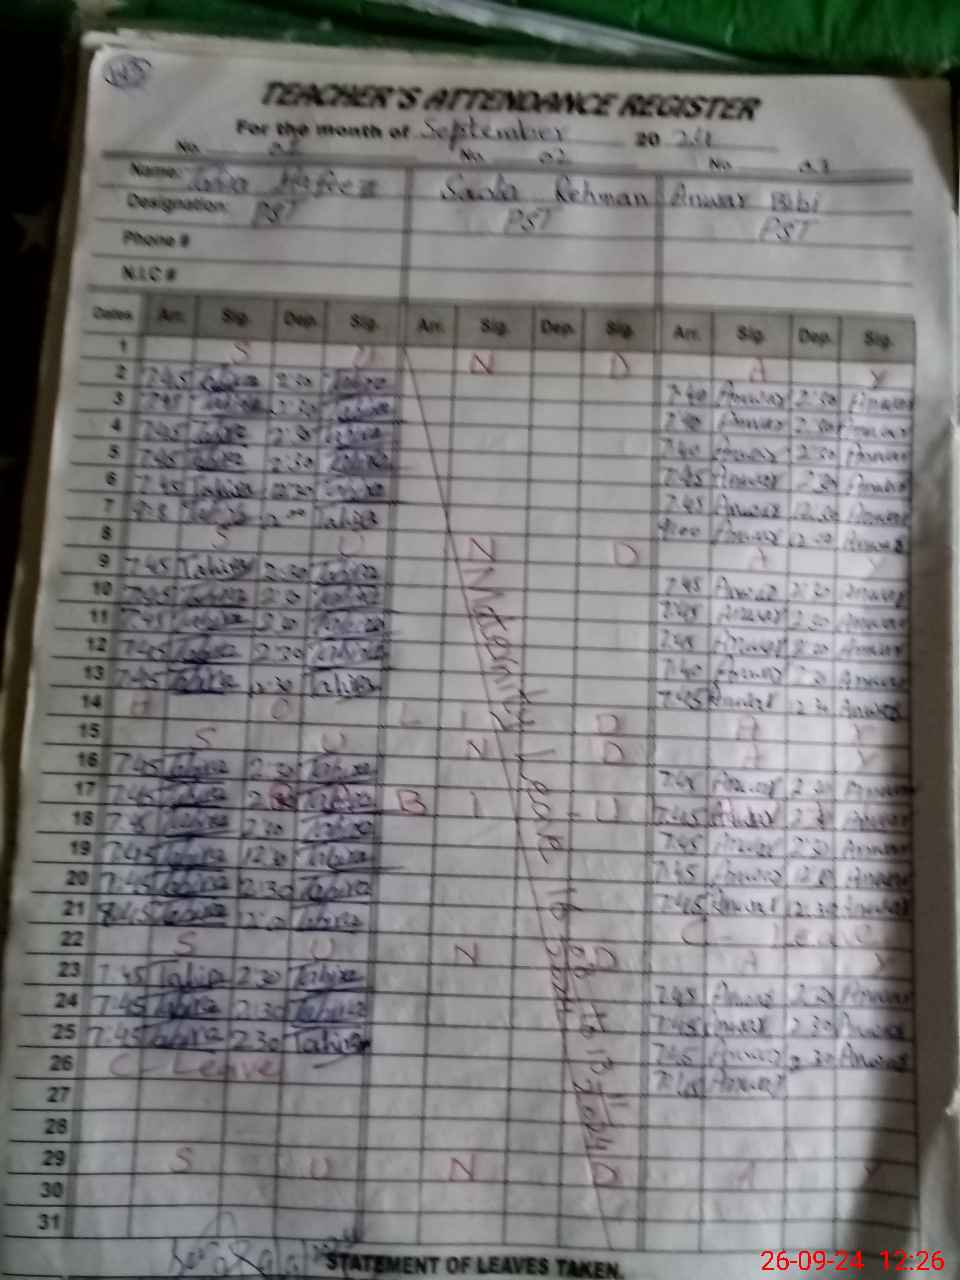 TEACHER'S ATTENDANCE REGISTER
For the month of September 20 24
No. 01 No. 02 No. 03
Name: Hafeez Sada Rehman Anwar Bibi
Designation: PST PST PST
Phone #
N.I.C #
Dates Arr. Sig. Dep. Sig. Arr. Sig. Dep. Sig. Arr. Sig. Dep. Sig.
1 S U N D A Y
2 7:45 Tahira 2:30 Tahira 7:40 Anwar 2:30 Anwar
3 7:45 Tahira 2:30 Tahira 7:40 Anwar 2:30 Anwar
4 7:45 Tahira 2:30 Tahira 7:40 Anwar 2:30 Anwar
5 7:45 Tahira 2:30 Tahira 7:45 Anwar 2:30 Anwar
6 7:45 Tahira 12:30 Tahira 7:45 Anwar 12:30 Anwar
7 Tahira 2:00 Tahira 9:00 Anwar 2:00 Anwar
8 S U N D A Y
9 7:45 Tahira 2:30 Tahira 7:45 Anwar 2:30 Anwar
10 7:45 Tahira 2:30 Tahira 7:45 Anwar 2:30 Anwar
11 7:45 Tahira 2:30 Tahira 7:45 Anwar 2:30 Anwar
12 7:45 Tahira 2:30 Tahira 7:40 Anwar 2:30 Anwar
13 7:45 Tahira 12:30 Tahira 7:45 Anwar 12:30 Anwar
14 H O L I D A Y
15 S U N D A Y
16 7:45 Tahira 2:30 Tahira 7:45 Anwar 2:30 Anwar
17 7:45 Tahira Tahira 7:45 Anwar Anwar
18 7:45 Tahira 2:30 Tahira 7:45 Anwar 2:30 Anwar
19 7:45 Tahira Tahira 7:45 Anwar Anwar
20 7:45 Tahira 12:30 Tahira 7:45 Anwar 12:30 Anwar
21 Tahira Tahira C- Leave
22 S U N D A Y
23 7:45 Tahira 2:30 Tahira 7:45 Anwar 2:30 Anwar
24 7:45 Tahira 2:30 Tahira 7:45 Anwar 2:30 Anwar
25 7:45 Tahira 2:30 Tahira 7:45 Anwar 2:30 Anwar
26 C- Leave Anwar
27
28
29 S U N D A Y
30
31
Maternity Leave
STATEMENT OF LEAVES TAKEN.
26-09-24 12:26